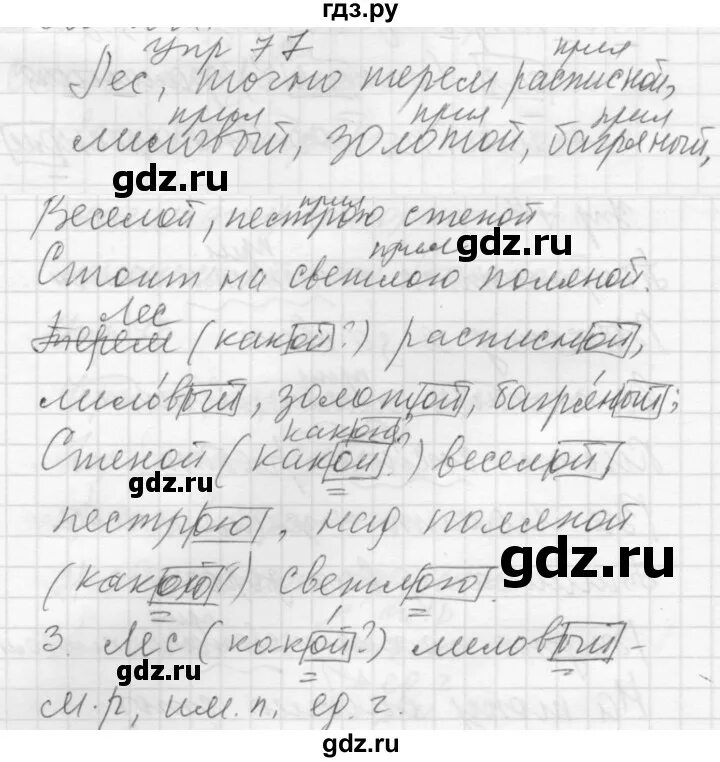 гдз.ру
Упр 77
прил
Лес, точно терем расписной,
прил прил прил
лиловый, золотой, багряный,
gdz.ru
прил
Веселой, пестрою стеной
gdz.ru
прил
Стоит на светлою поляной.
1. Лес
терем (какой?) расписной,
лиловый, золотой, багряный;
какою?
Стеной (какой?) веселой,
gdz.ru
пестрою, над поляной
gdz.ru
(какою?) светлою.
3. Лес (какой?) лиловый -
gdz.ru
м.р, им.п, ед.ч.
gdz.ru